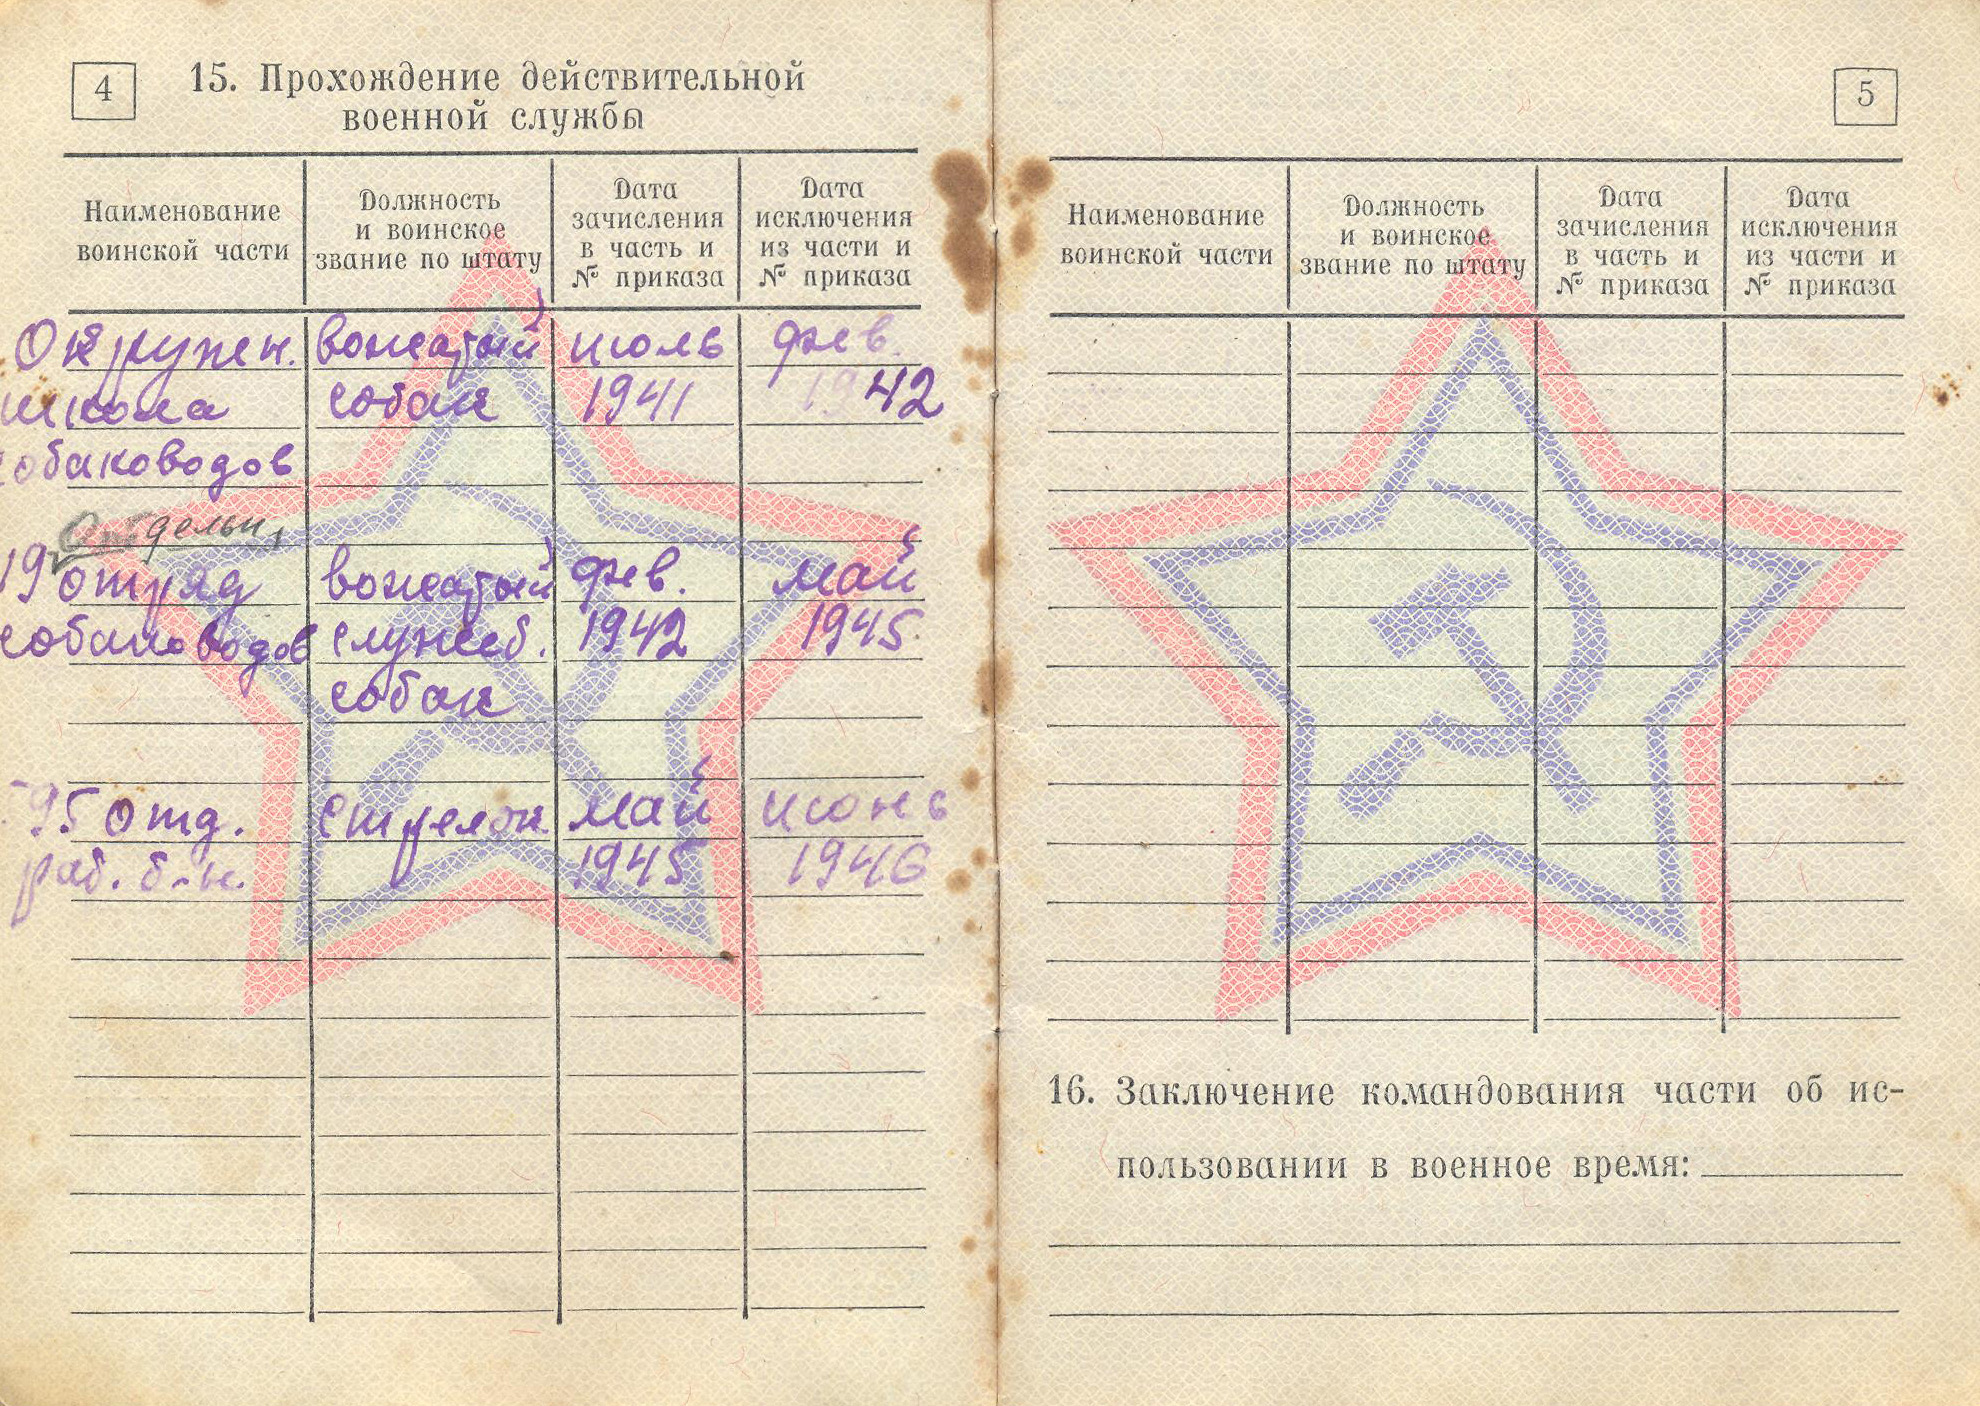 4
15. Прохождение действительной
военной службы
Наименование
воинской части
Должность
и воинское
звание по штату
Дата
зачисления
в часть и
№ приказа
Дата
исключения
из части и
№ приказа
Окружн. вожатый июль фев.
школа собак 1941 1942
собаководов
отдельн.
19 отряд вожатый фев. май
собаководов служеб. 1942 1945
собак
95 отд. стрелок май июнь
раб. б-н. 1945 1946
5
Наименование
воинской части
Должность
и воинское
звание по штату
Дата
зачисления
в часть и
№ приказа
Дата
исключения
из части и
№ приказа
16. Заключение командования части об ис-
пользовании в военное время: